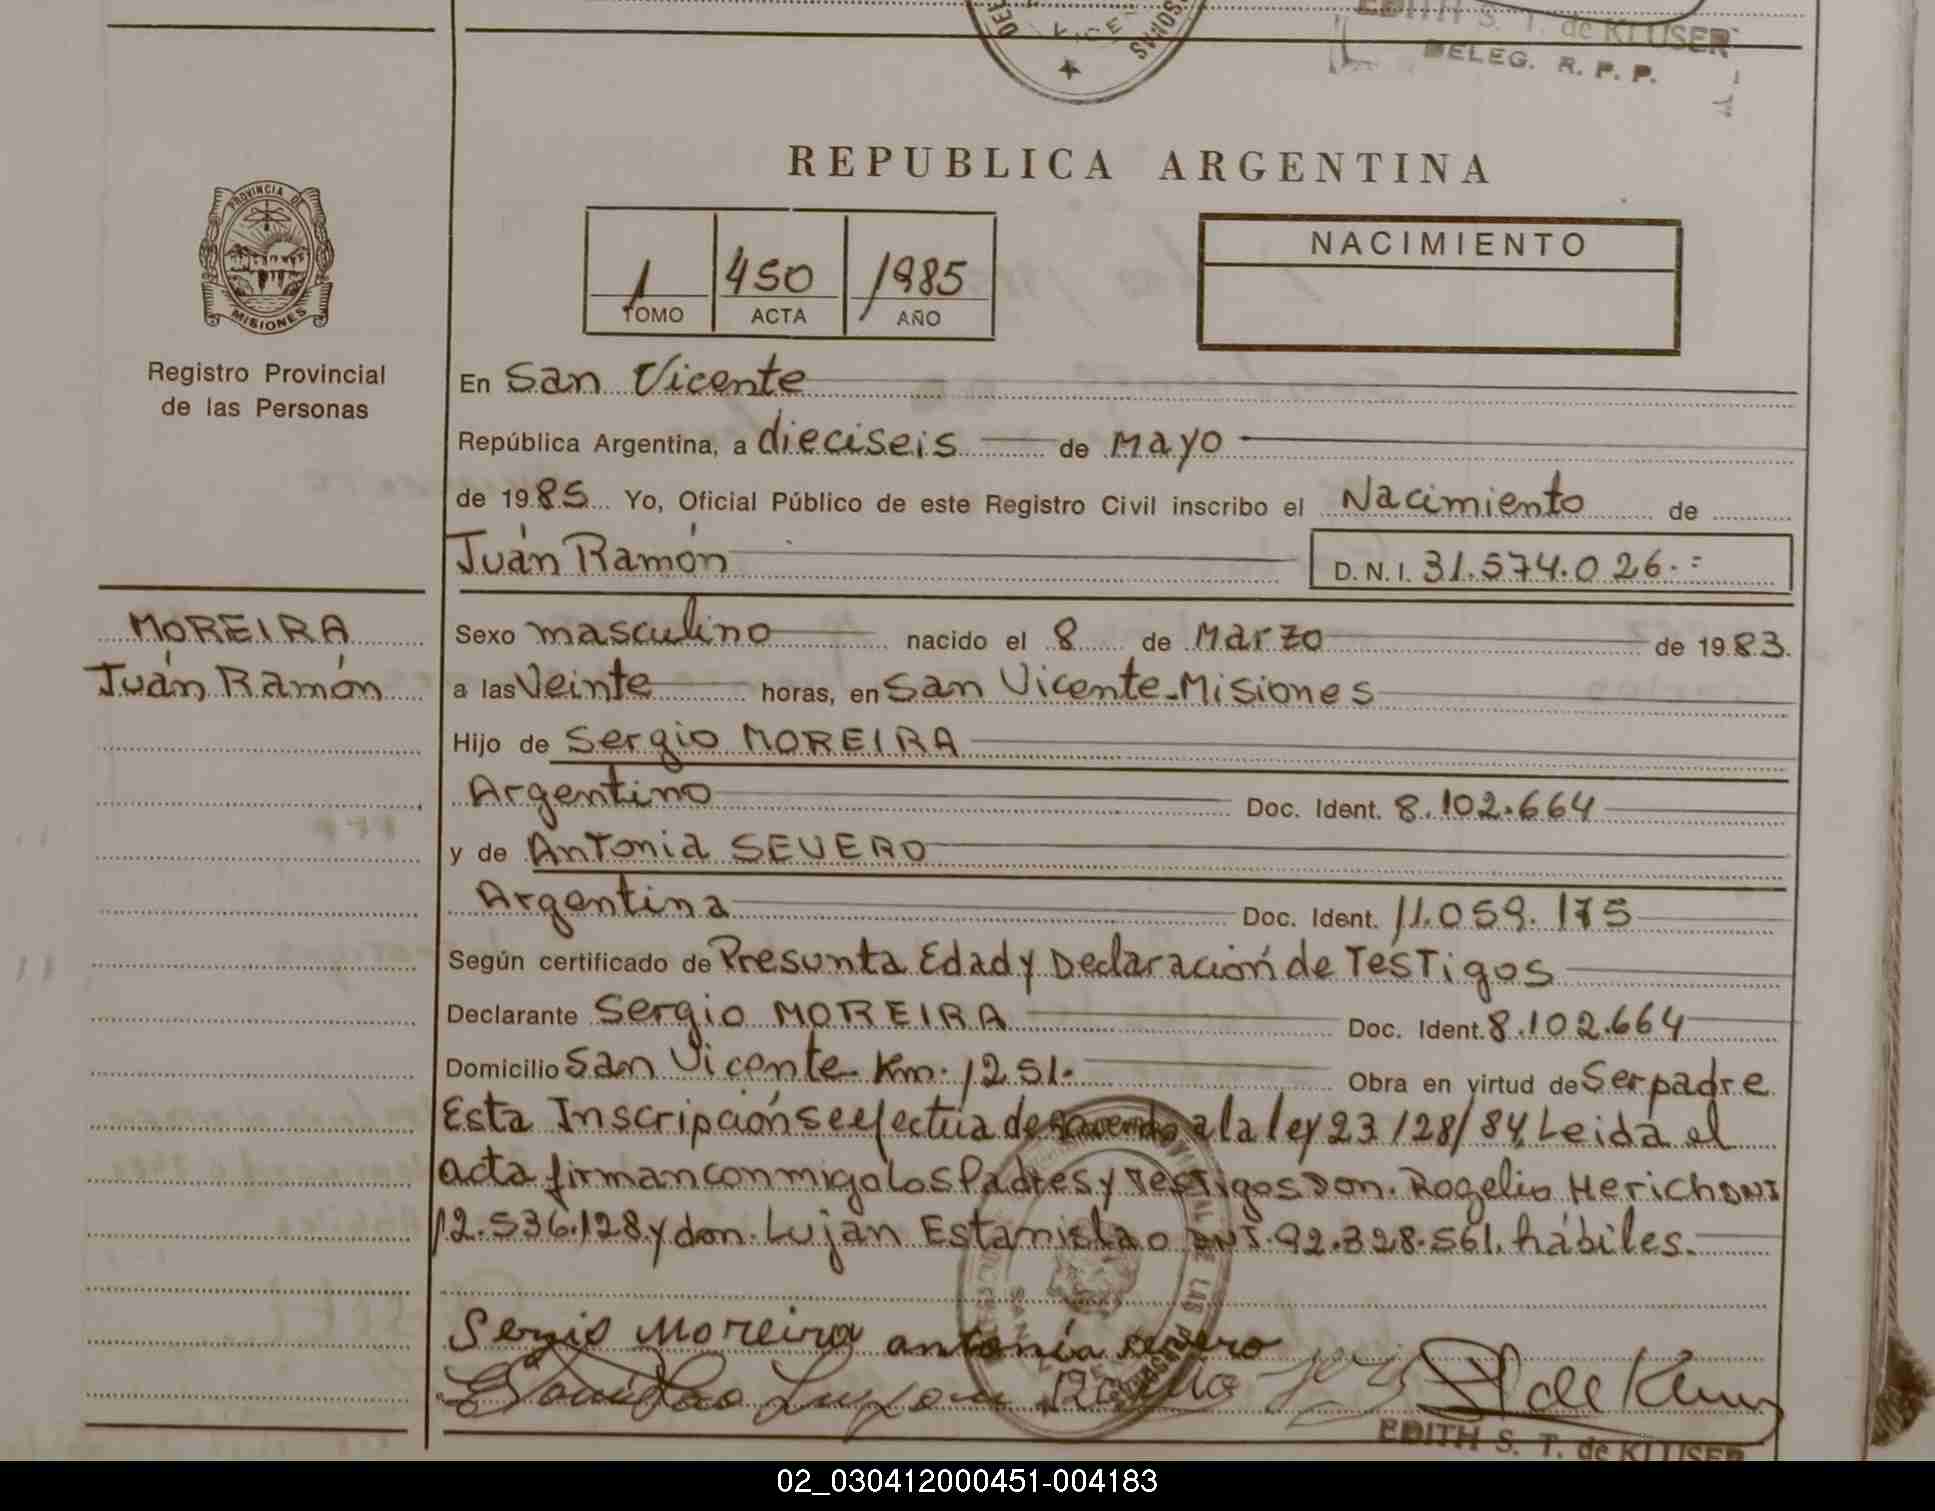 EDITH S. T. de KLUSER
DELEG. R. P. P.
REPUBLICA ARGENTINA
PROVINCIA DE
MISIONES
1 450 1985
TOMO ACTA AÑO
NACIMIENTO
Registro Provincial
de las Personas
En San Vicente
República Argentina, a dieciseis de Mayo
de 1985 Yo, Oficial Público de este Registro Civil inscribo el Nacimiento de
Juán Ramón D.N.I. 31.574.026.=
MOREIRA
Juán Ramón
Sexo masculino nacido el 8 de Marzo de 1983.
a las Veinte horas, en San Vicente-Misiones
Hijo de Sergio MOREIRA
Argentino Doc. Ident. 8.102.664
y de Antonia SEVERO
Argentina Doc. Ident. 11.059.175
Según certificado de Presunta Edad y Declaración de Testigos
Declarante Sergio MOREIRA Doc. Ident. 8.102.664
Domicilio San Vicente- Km. 1251. Obra en virtud de Ser padre
Esta Inscripción se efectúa de acuerdo a la ley 23128/84, Leida el
acta firman conmigo los Padres y Testigos Don. Rogelio Herich DNI
12.536.128 y don. Lujan Estanislao DNI. 92.328.561. hábiles.
Sergio Moreira antonia severo
Estanislao Lujan Rogelio
EDITH S. T. de KLUSER
02_030412000451-004183